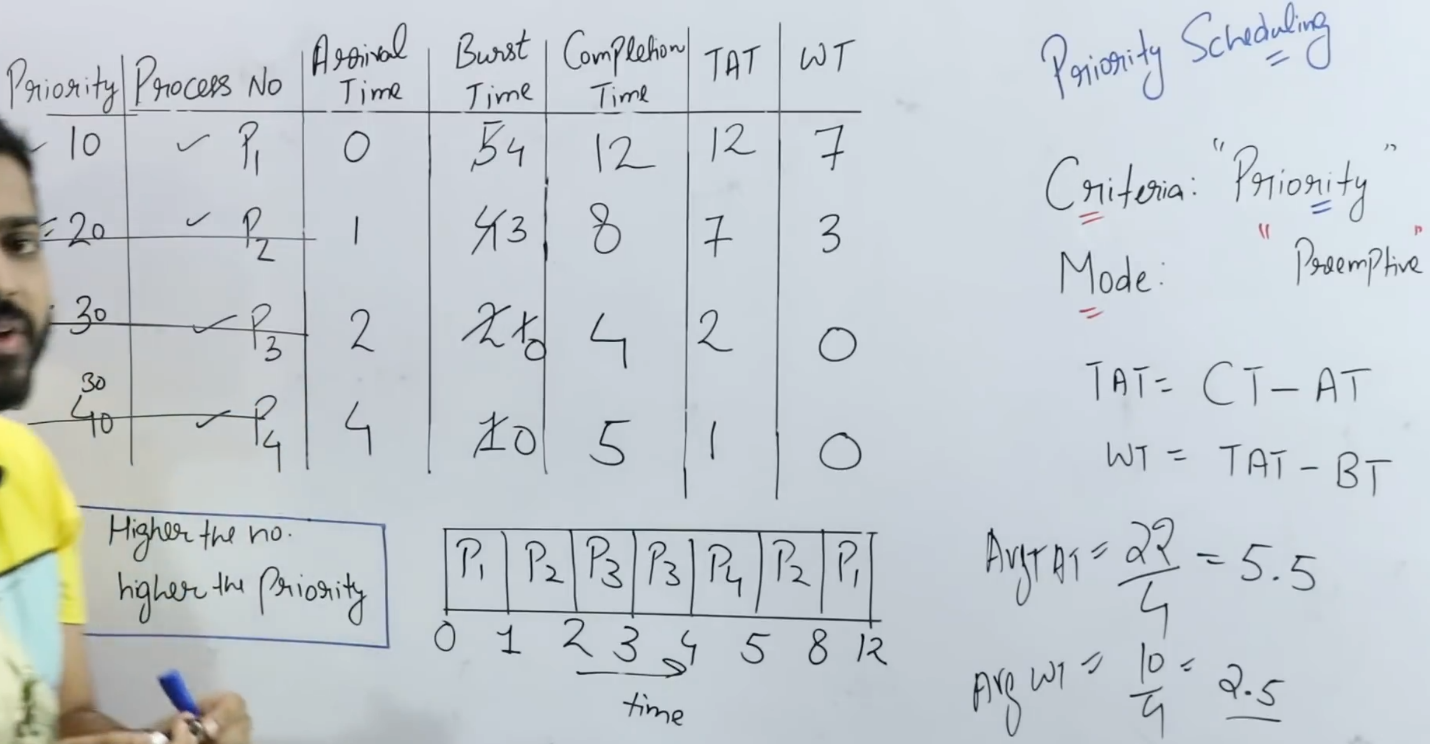 Priority Process No Arrival Time Burst Time Completion Time TAT WT
10 P1 0 5 4 12 12 7
20 P2 1 4 3 8 7 3
30 P3 2 2 1 0 4 2 0
30
40 P4 4 1 0 5 1 0
Higher the no.
higher the Priority
P1 P2 P3 P3 P4 P2 P1
0 1 2 3 4 5 8 12
time
Priority Scheduling
Criteria: "Priority"
Mode: "Preemptive"
TAT = CT - AT
WT = TAT - BT
AvgTAT = 22/4 = 5.5
Avg WT = 10/4 = 2.5